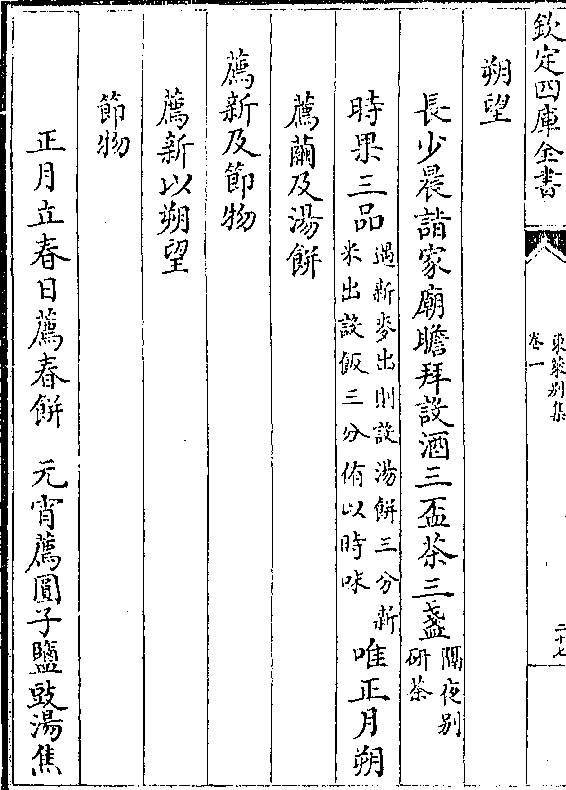 欽定四庫全書
東萊别集
卷一
二十七
朔望
長少晨詣家廟瞻拜設酒三盃茶三盞隔夜别研茶
時果三品遇新麥出則設湯餅三分新米出設飯三分侑以時味唯正月朔
薦繭及湯餅
薦新及節物
薦新以朔望
節物
正月立春日薦春餅 元宵薦圓子鹽豉湯焦